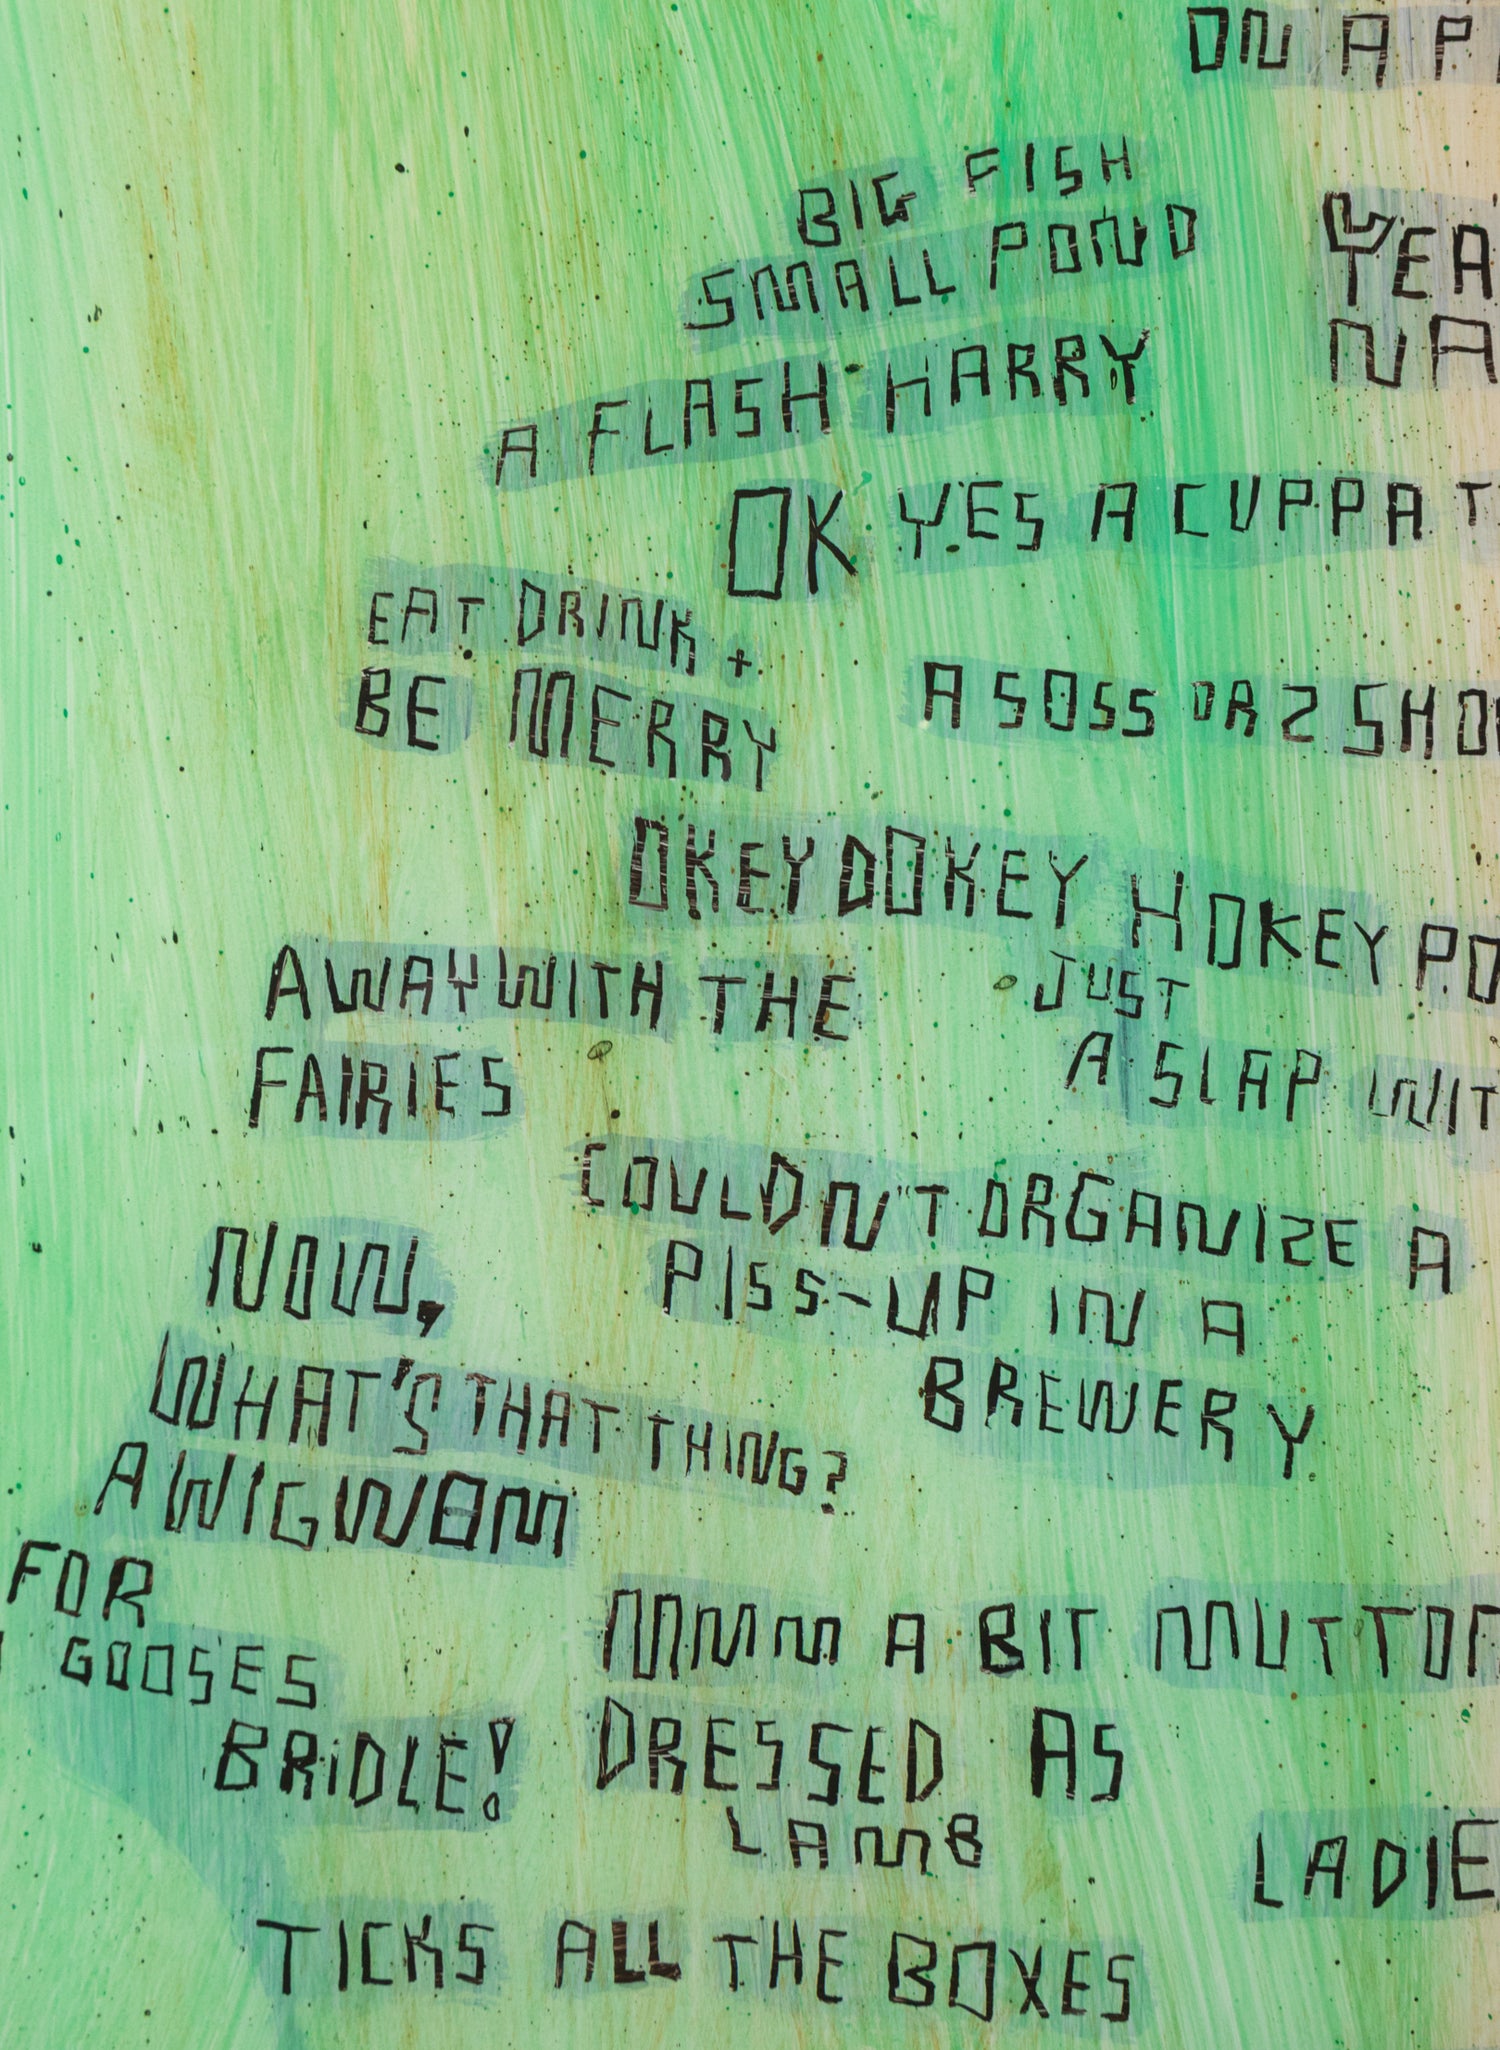 ON A P
BIG FISH
SMALL POND
YEA
NA
A FLASH HARRY
OK YES A CUPPA T
EAT DRINK +
BE MERRY
A SOSS OR 2 SHO
OKEY DOKEY HOKEY PO
AWAY WITH THE
FAIRIES
JUST
A SLAP WIT
COULDN'T ORGANIZE A
PISS-UP IN A
BREWERY
NOW,
WHAT'S THAT THING?
A WIGWAM
FOR
GOOSES
BRIDLE!
MMMM A BIT MUTTON
DRESSED AS
LAMB
LADIE
TICKS ALL THE BOXES